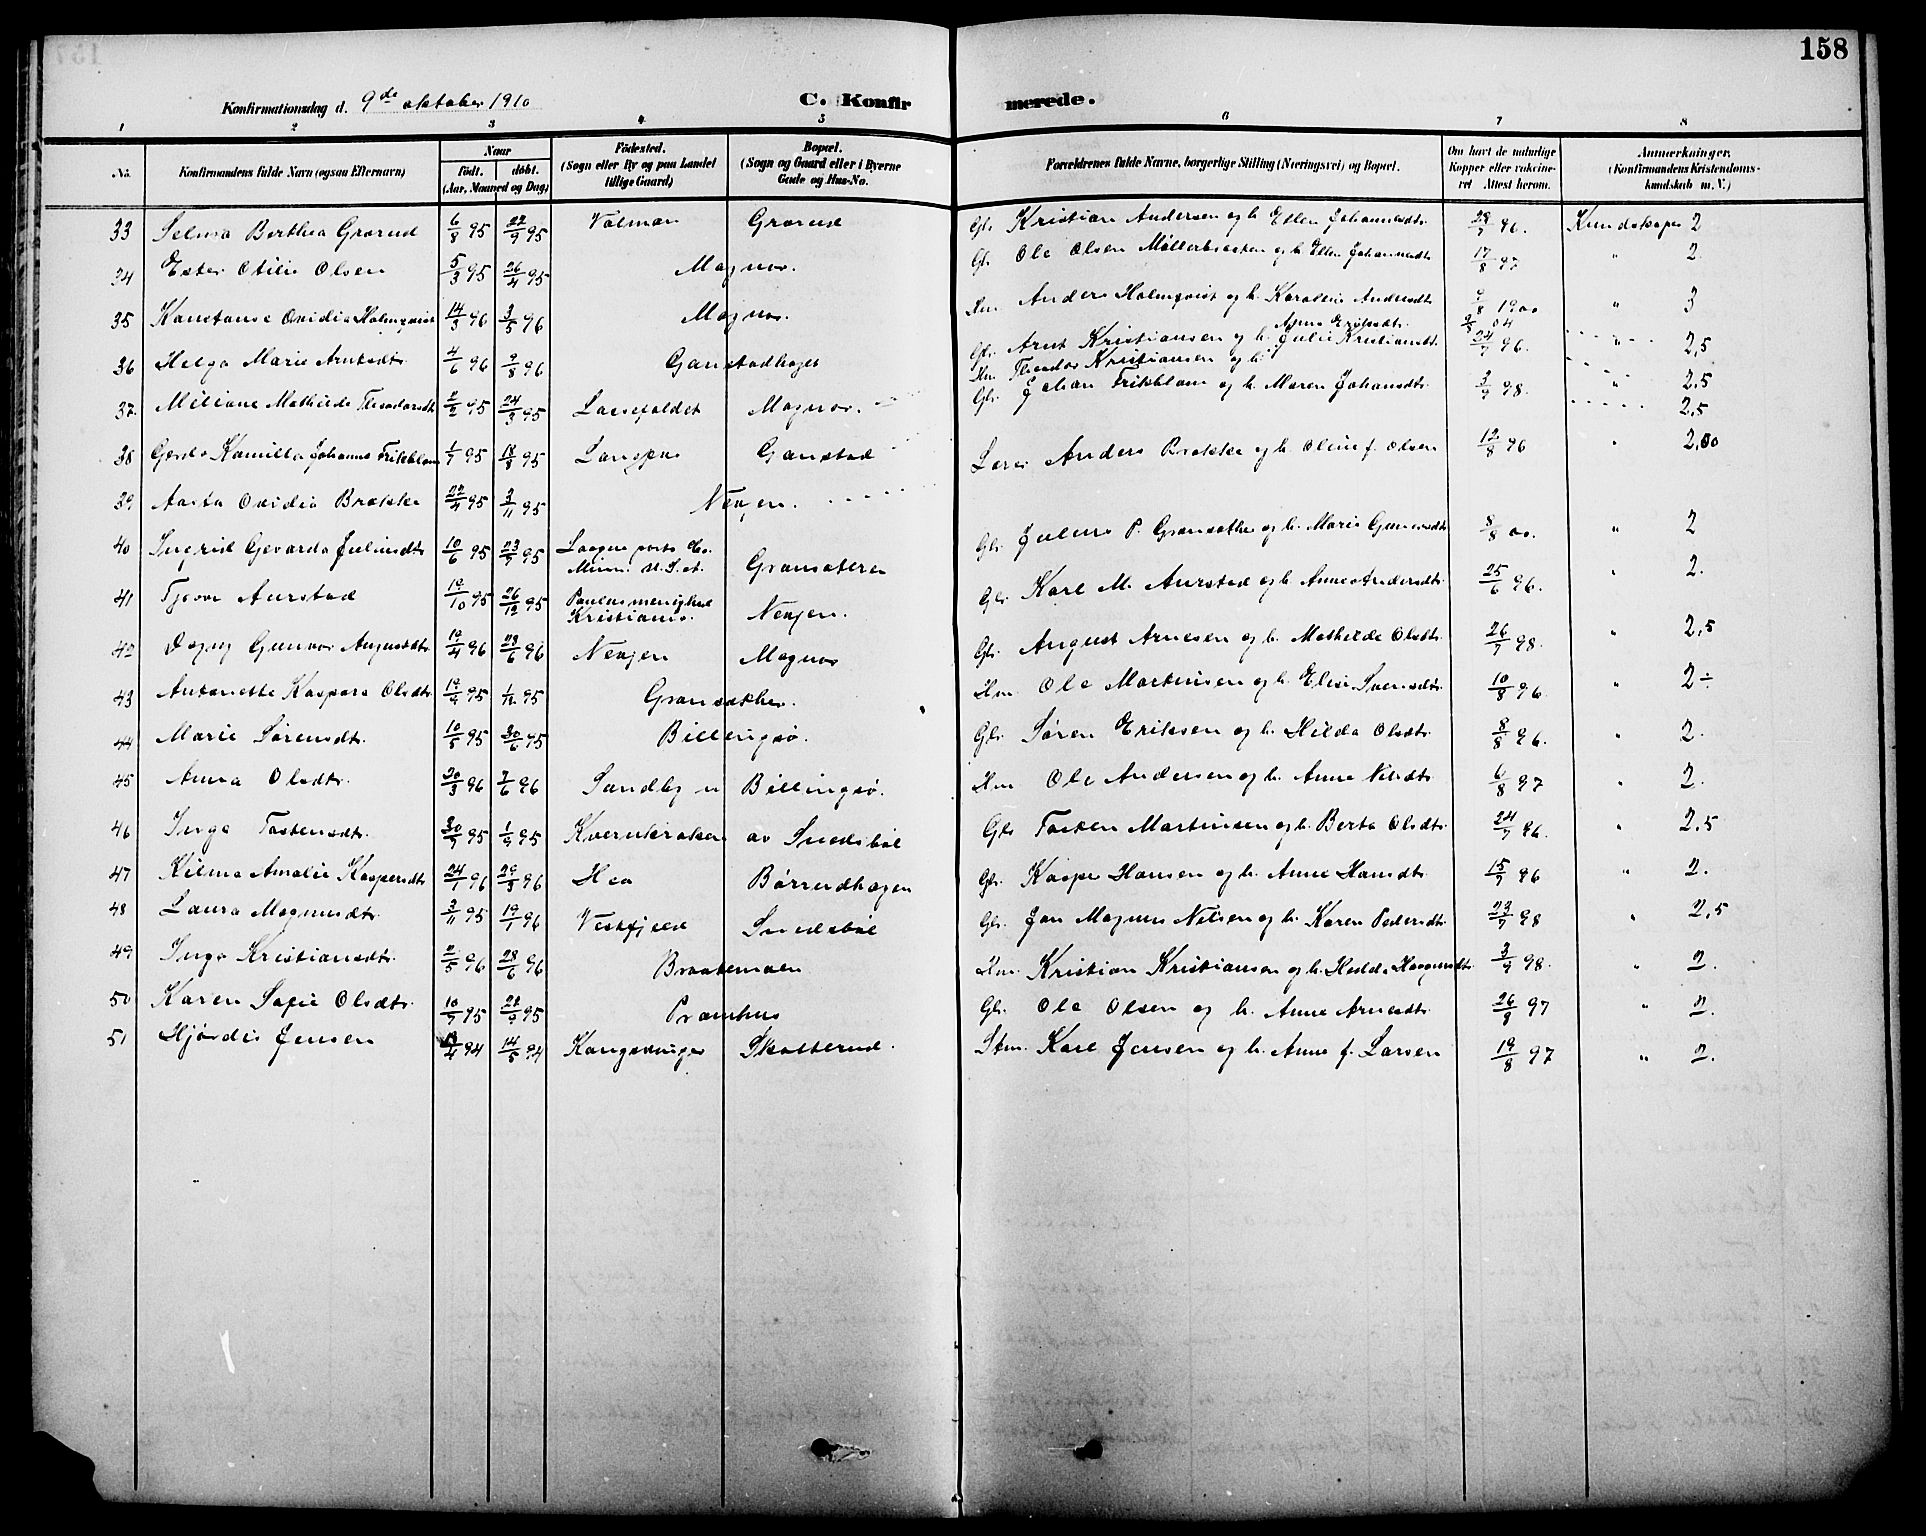 158
Konfirmationsdag d. 9de oktober 1910 C. Konfirmerede.
1 2 3 4 5 6 7 8
No. Konfirmandens fulde Navn (ogsaa Efternavn) Naar født. døbt. (Aar, Maaned og Dag) Fødested. (Sogn eller By og paa Landet tillige Gaard) Bopæl. (Sogn og Gaard eller i Byerne Gade og Hus-No. Forældrenes fulde Navne, borgerlige Stilling (Næringsvei) og Bopæl. Om havt de naturlige Kopper eller vaccineret Attest herom. Anmærkninger. (Konfirmandens Kristendomskundskab m. V.)
33 Selma Berthea Grorud 6/8 95 22/9 95 Valmon Grorud Gbr. Kristian Andersen og h. Ellen Johannesdtr. 28/7 96. Kundskaper 2
34 Ester Otilie Olsen 5/3 95 26/4 95 Magnor. Gbr. Ole Olsen Møllerbraaten og h. Ellen Johannesdtr 17/8 97 " 2.
35 Konstanse Ovidia Holmqvist 14/3 96 3/5 96 Magnor. Hm Anders Holmqvist og h. Karoline Andersdtr 1900 " 3
36 Helga Marie Arntsdtr. 4/6 96 9/8 96 Ganstadhaget Gbr. Arnt Kristiansen og h. Julie Kristiansdtr. 24/7 96. " 2,5
37. Miliane Mathilde Theodorsdtr 2/2 95 24/3 95 Lausfaldet Magnor. Hm Theodor Kristiansen og h. Anne Eriksdtr. 04 " 2,5
38 Gerda Kamilla Johanna Frikblom 1/7 95 18/8 95 Ganstad Gbr. Johan Frikblom og h. Maren Johansdtr. 3/9 98. 2,5
39 Aasta Ovidia Brække 22/4 95 3/11 95 Nexjen. Lærer Anders Brække og h. Oline f. Olsen 12/8 96 " 2,00
40 Ingrid Gevarda Juliusdtr 10/6 95 23/7 95 Minn. U.S.A. Gransæteren Gbr. Julius P. Gransæther og h. Marie Gunersdtr 8/8 00. " 2
41 Tjovar Aurstad 19/10 95 26/12 95 Paulus menighed Kristiania. Nexjen. Gbr. Karl M. Aurstad og h. Anne Andersdtr. 25/6 96. " 2.
42 Dagny Gunvor Augustdtr. 19/4 96 28/6 96 Nexjen Magnor Gbr. August Arnesen og h. Mathilde Olsdtr. 26/7 98. " 2,5
43 Antonette Kaspara Olsdtr. 19/9 95 1/12 95 Gransæther. Hm Ole Martinsen og h. Elise Svensdtr. 10/8 96. " 2÷
44 Marie Sørensdtr. 10/5 95 30/6 95 Billingsø. Gbr. Søren Eriksen og h. Hilda Olsdtr. 8/8 96. " 2.
45 Anna Olsdtr. 30/3 96 7/6 96 Sandby n Billingsø. Hm Ole Andersen og h. Anne Nilsdtr. 6/8 97 " 2.
46 Inga Tostensdtr. 30/7 95 1/9 95 Kvernkroken av Snedsbøl Gbr Tosten Martinsen og h. Berte Olsdtr. 24/7 96. " 2,5
47 Kilma Amalie Kaspersdtr 24/1 96 29/3 96 Hea Børrudhagen Gbr. Kasper Hansen og h. Anne Hansdtr. 15/7 96 " 2.
48 Laura Magnusdtr. 3/11 95 19/1 96 Vestfjeld Snedsbøl Gbr. Jan Magnus Nilsen og h. Karen Pedersdtr. 23/7 98 " 2,5
49 Inga Kristiansdtr. 2/5 96 28/6 96 Braatemoen Hm. Kristian Kristiansen og h. Hulda Haagensdtr. 3/9 98. " 2.
50 Karen Sofie Olsdtr. 10/7 95 22/9 95 Pramhus Gbr. Ole Olsen og h. Anne Arnesdtr. 26/8 97 " 2.
51 Hjørdis Jensen 94 14/5 94 Kongsvinger Skotterud. Stm. Karl Jensen og h. Anna f. Larsen 19/8 97 " 2.